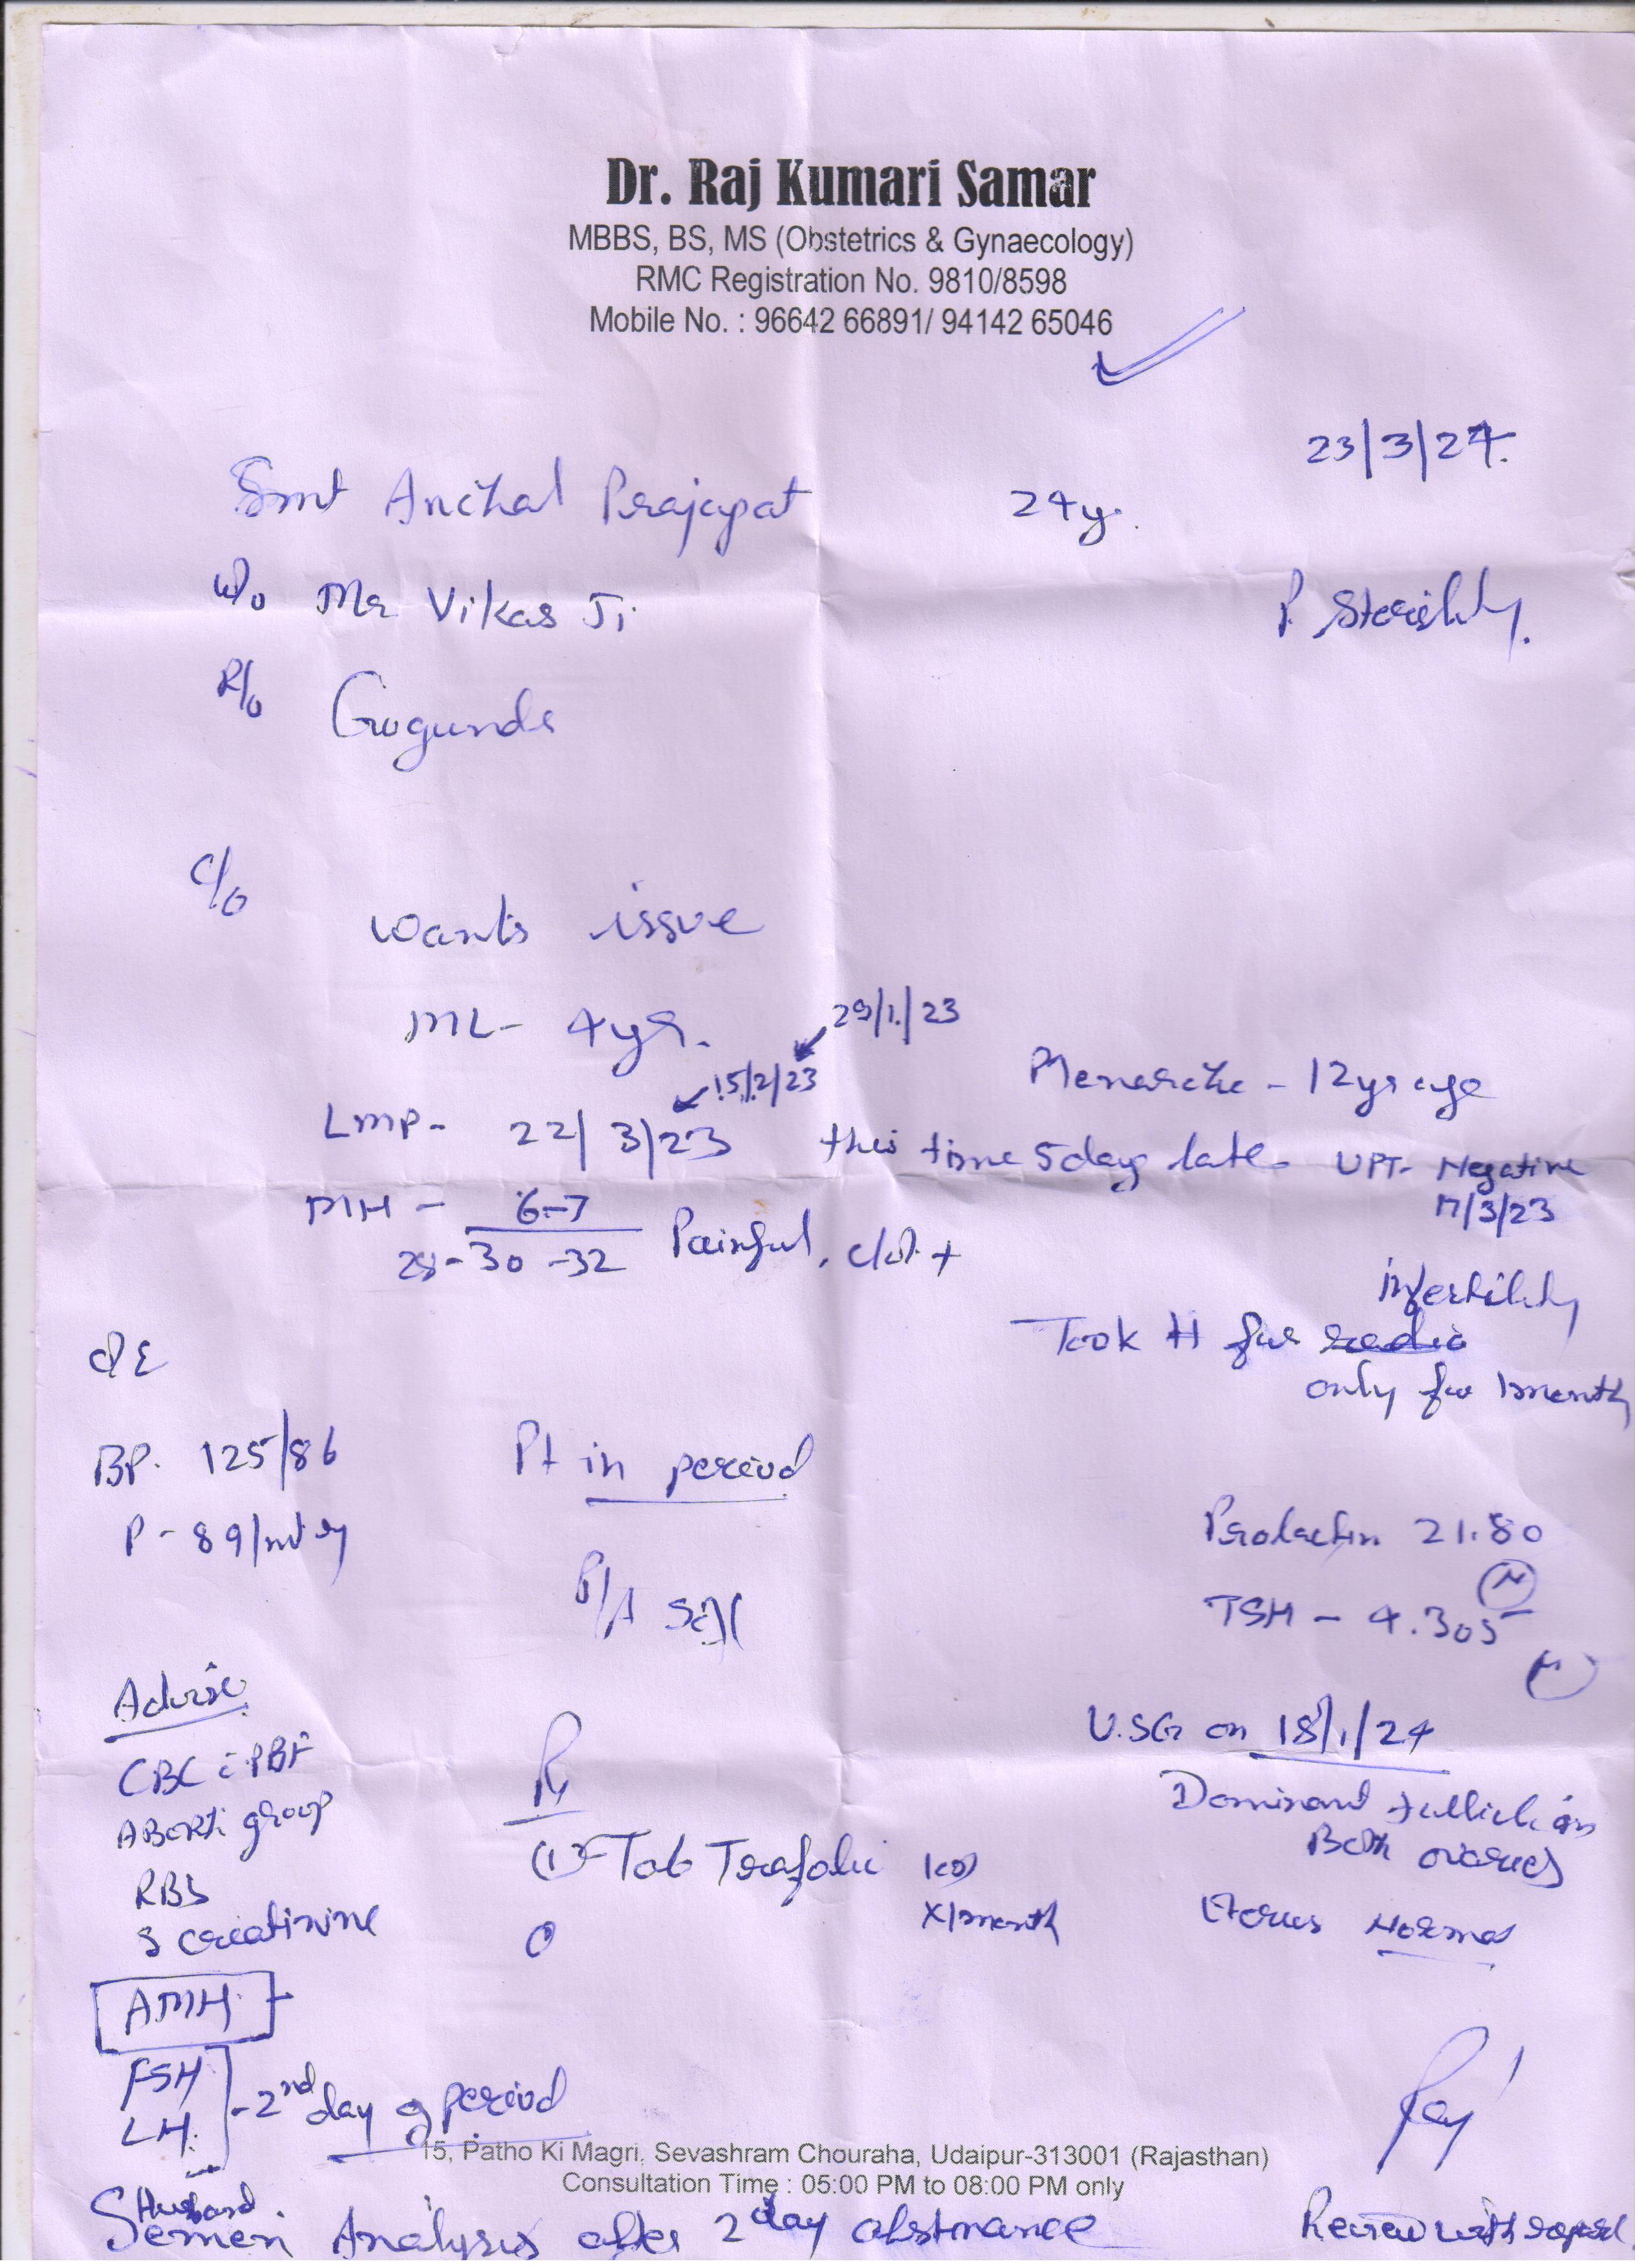 Dr. Raj Kumari Samar
MBBS, BS, MS (Obstetrics & Gynaecology)
RMC Registration No. 9810/8598
Mobile No. : 96642 66891/ 94142 65046
23/3/24.
Smt Anchal Prajapat 24y.
W/o Mr Vikas Ji
P. Sterility.
R/o Gogunda
C/o
wants issue
ML- 4yr.
29/1/23
15/2/23
Menarche - 12yrs age
LMP- 22/3/23 this time 5day late UPT- Negative
17/3/23
MH - 6-7
28-30-32 Painful, clot +
infertility
Took tt for only for 1month
O/E
BP. 125/86 Pt in period
P - 89/mt
Prolactin 21.80
N
P/A Soft
TSH - 4.305
N
Advise
U.SG on 18/1/24
CBC c PBF
Rx
Dominant follicle in
Both ovaries
ABORh group
(1) Tab Trafolic 1 OD
x1month
RBS
S creatinine
Uterus Normal
AMH
FSH
LH - 2nd day of period
Raj
15, Patho Ki Magri, Sevashram Chouraha, Udaipur-313001 (Rajasthan)
Consultation Time : 05:00 PM to 08:00 PM only
Husband
Semen Analysis after 2 day abstinance
Review with report